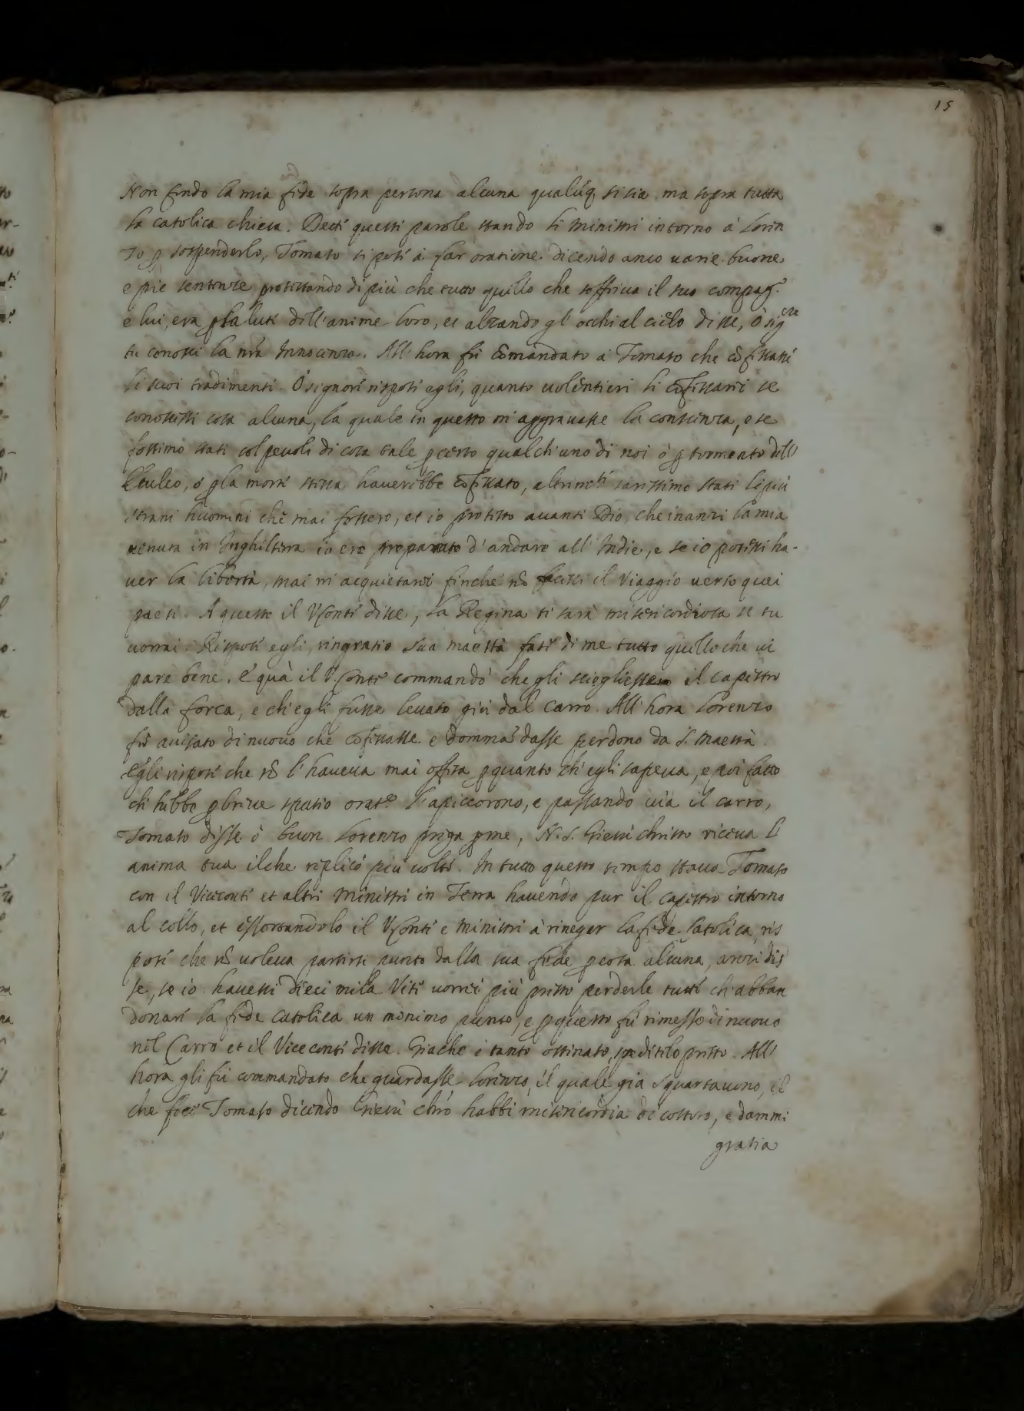 15
Non fondo la mia fide sopra persona alcuna qualūq, si sia, ma sopra tutta
la catolica chiesa. Detti questi parole stando li Ministri intorno à Loren
zo p sospenderlo, Tomaso si posi à far oratione. dicendo anco uarie buone
e pie sentenze, protestando di più che tutto quello che soffriua il suo compag.º
e lui, era p la luti dell'anime loro, et alzando gl'occhi al cielo disse, ò sigre
tu conosci la nrā Innocenza. All'hora fù cōmandato à Tomaso che cōfessassi
li suoi tradimenti. O signori rispose egli, quanto uolentieri li cōfessarei se
conoscessi cosa alcuna, la quale in questo m'aggrauasse la conscienza, e se
fossimo stati colpeuoli di cosa tale p certo qualch'uno di noi ò p tromento dell'
Eculeo, ò p la morte stessa hauerebbe cōfessato, altrimēti sarissimo stati li più
strani huomini che mai fossero, et io protesto auanti Dio, che inanzi la mia
uenuta in Inghilterra io ero preparato d'andare all'Indie, e se io potessi ha-
uer la libertà, mai m'acquietarei finche nō facessi il Viaggio uerso quei
paesi. A questo il Vsconti disse, La Regina ti sarà misericordiosa se tu
uorrai. Rispose egli, ringratio sua maestà, fate di me tutto quello che ui
pare bene. E quà il Vsconte commandò che gli sciogliessero il capestro
dalla forca, e ch'egli fusse leuato giù dal carro. All'hora Lorenzo
fù auisato di nuouo che cōfessasse e dommādasse perdono da S. Maestà
Egli rispose che nō l'haueua mai offesa p quanto ch'egli sapeua, e poi fatto
ch'hebbe p breue spatio orate l'apiccorono, e passando uia il carro,
Tomaso disse ò buon Lorenzo priega p me, N. S. Giesù christo riceua l'
anima tua ilche replicò più uolte. In tutto questo tempo staua Tomaso
con il Viceconti et altri ministri in Terra hauendo pur il capestro intorno
al collo, et essortandolo il Vsconte e ministri à rineger la fede Catolica, ris
pose che nō uoleua partirsi punto dalla sua fede p cosa alcuna, anzi dis
se, se io hauessi dieci mila Vite uorrei più presto perderle tutte ch'abban
donare la fede catolica un minimo punto, e p questo fù rimesso di nuouo
nel Carro et il Viceconti disse. Giache è tanto ostinato, speditilo presto. All'
hora gli fù commandato che guardasse Lorenzo, il quale già squartauono, il
che fece Tomaso dicendo Giesù chrō habbi misericordia di costoro, e dammi
gratia